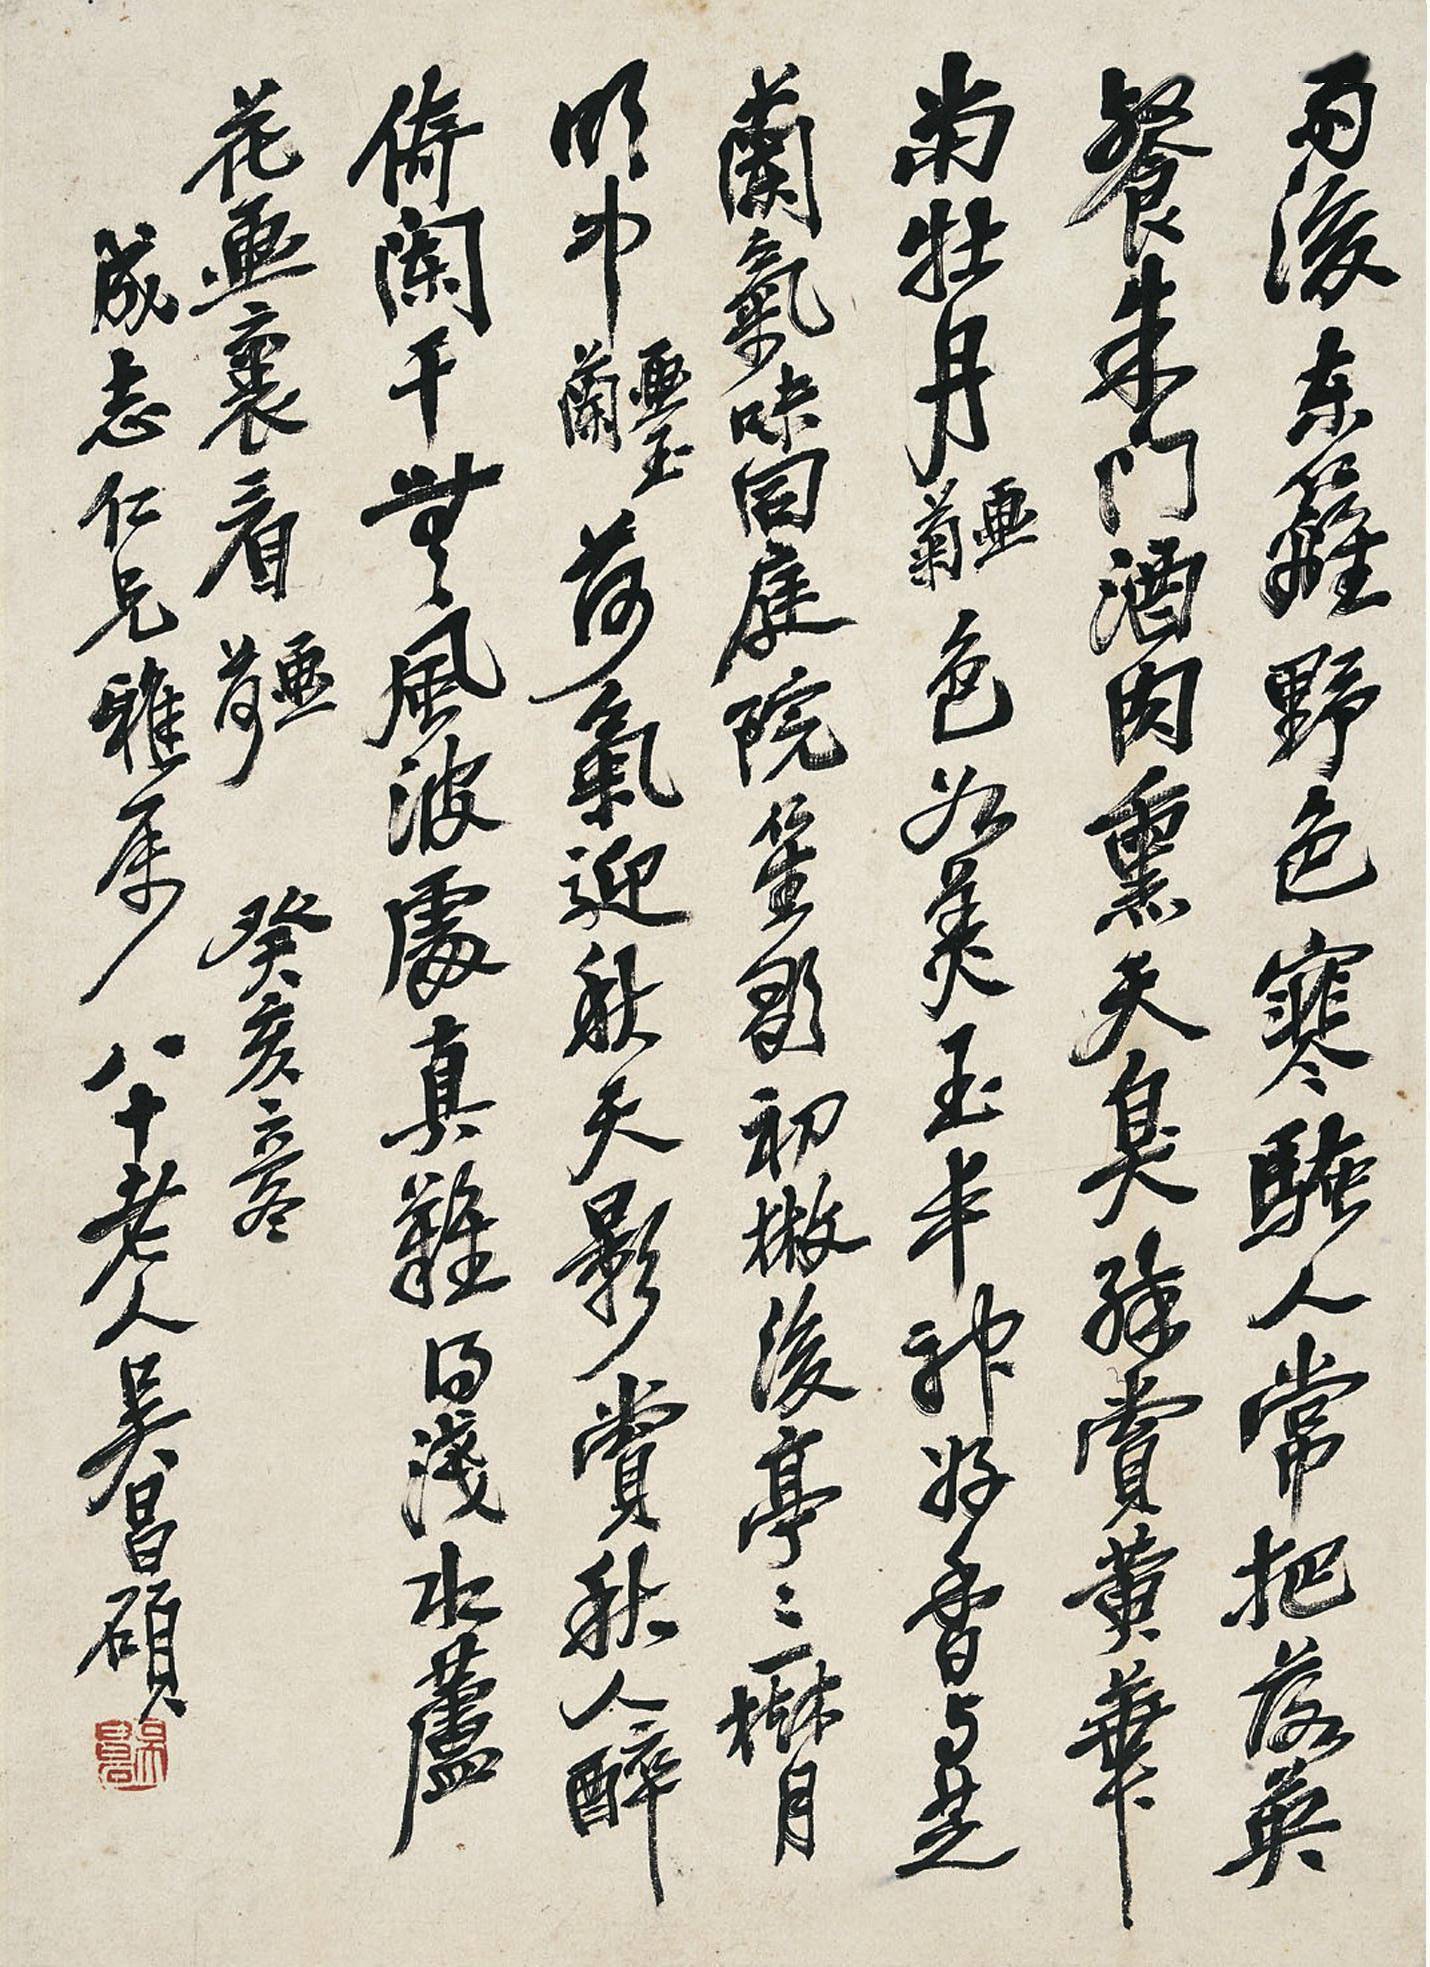 雨後东籬野色寒騷人常把落英
餐朱門酒肉熏天臭賞黃華
尚牡丹 畫菊 色如美玉丰神好香与芝
蘭氣味同庭院笙歌初撤後亭亭三樹月
明中 畫玉蘭 荷氣迎秋天影賞秋人醉
倚闌干無風波處真難得淺水蘆
花畫裏看 畫荷 癸亥立冬
成志仁兄雅屬 八十老人吳昌碩
吳昌石